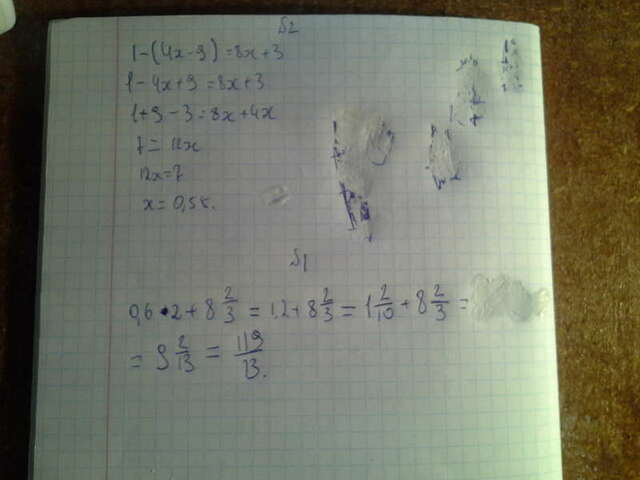 №2
1-(4x-9)=8x+3
1-4x+9=8x+3
1+9-3=8x+4x
7=12x
12x=7
x=0,58.
№1
0,6•2+8 2/3 = 1,2+8 2/3 = 1 2/10 + 8 2/3 =
= 9 2/13 = 119/13.